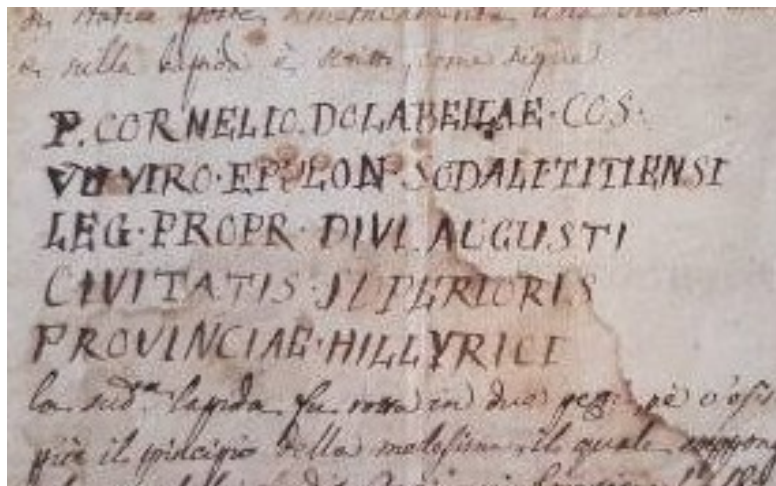 sulla lapida è scritto, come sigue
P. CORNELIO. DOLABELLAE · COS ·
VII VIRO · EPULON · SODALI TITIENSI
LEG · PROPR · DIVI AUGUSTI
CIVITATIS · SUPERIORIS
PROVINCIAE · HILLYRICE
la sud.ta lapida fu rotta in due pezzi, nè v'è
più il principio della medesima, il quale